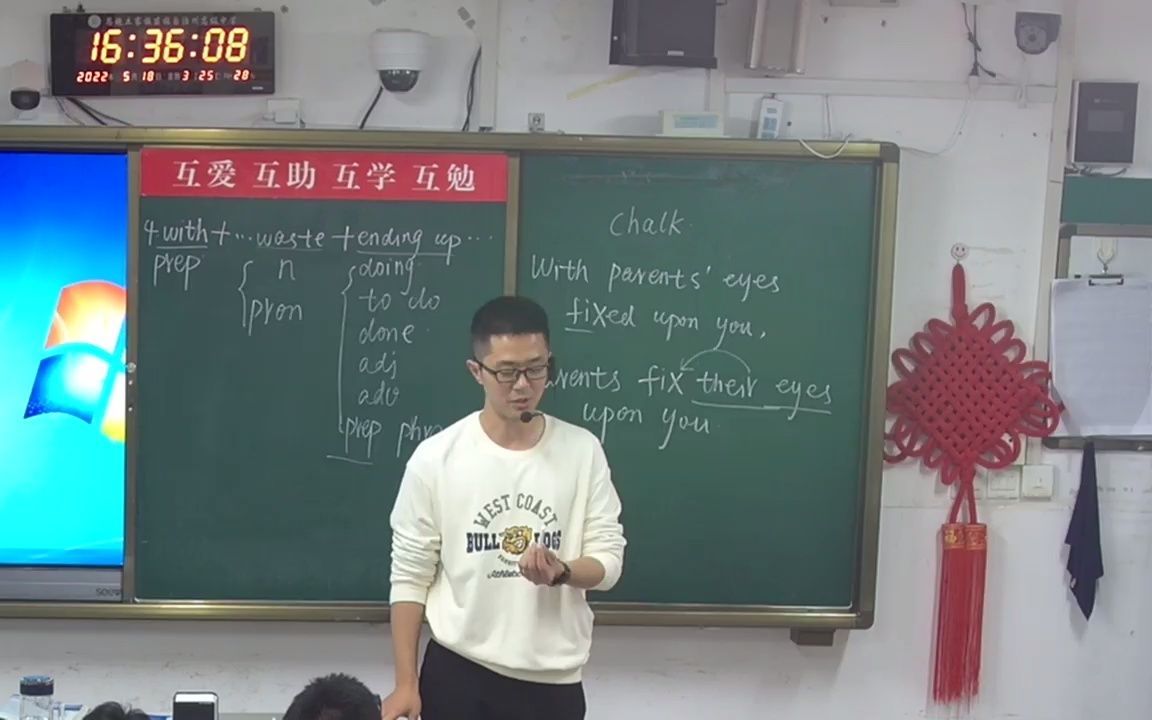 16:36:08
2022年 5月 18日 星期3 25 28
互爱 互助 互学 互勉
4 with + ... waste + ending up ...
prep n doing
pron to do
done
adj
adv
prep
chalk
With parents' eyes
fixed upon you,
fix their eyes
upon you
WEST COAST
BULL